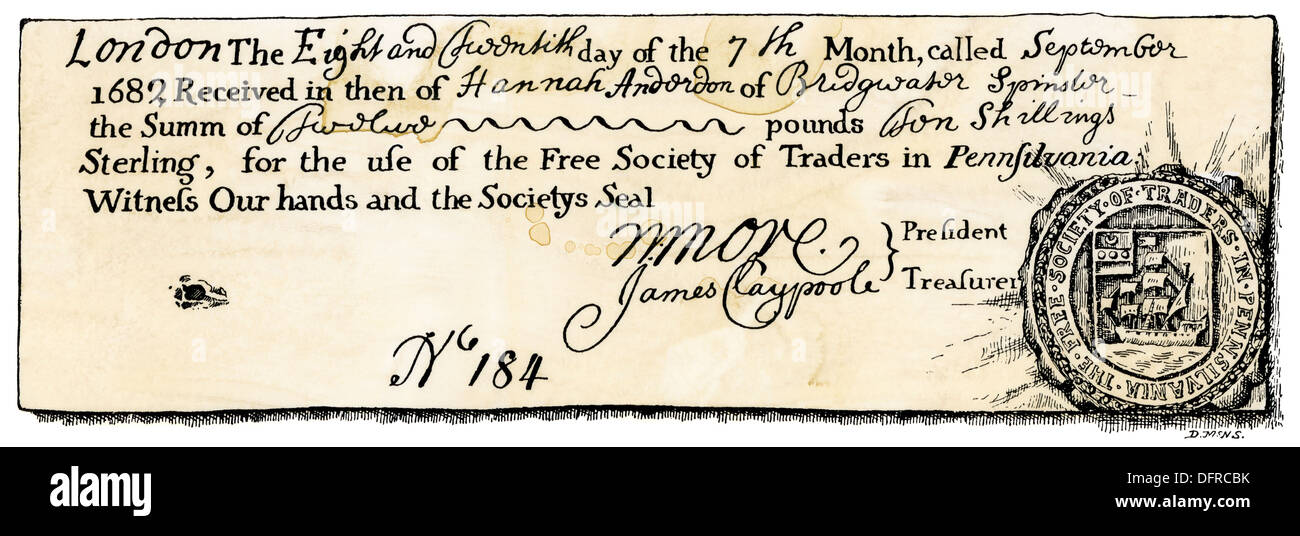 London The Eight and Twentith day of the 7th Month, called September
1682 Received in then of Hannah Anderdon of Bridgwater Spinster
the Summ of Twelve pounds Ten Shillings
Sterling, for the uſe of the Free Society of Traders in Pennſilvania.
Witneſs Our hands and the Societys Seal
N. More. } Preſident
James Claypoole Treaſurer
THE · FREE · SOCIETY · OF · TRADERS · IN · PENNSILVANIA ·
No 184
D. McN S.
alamy
alamy
DFRCBK
www.alamy.com